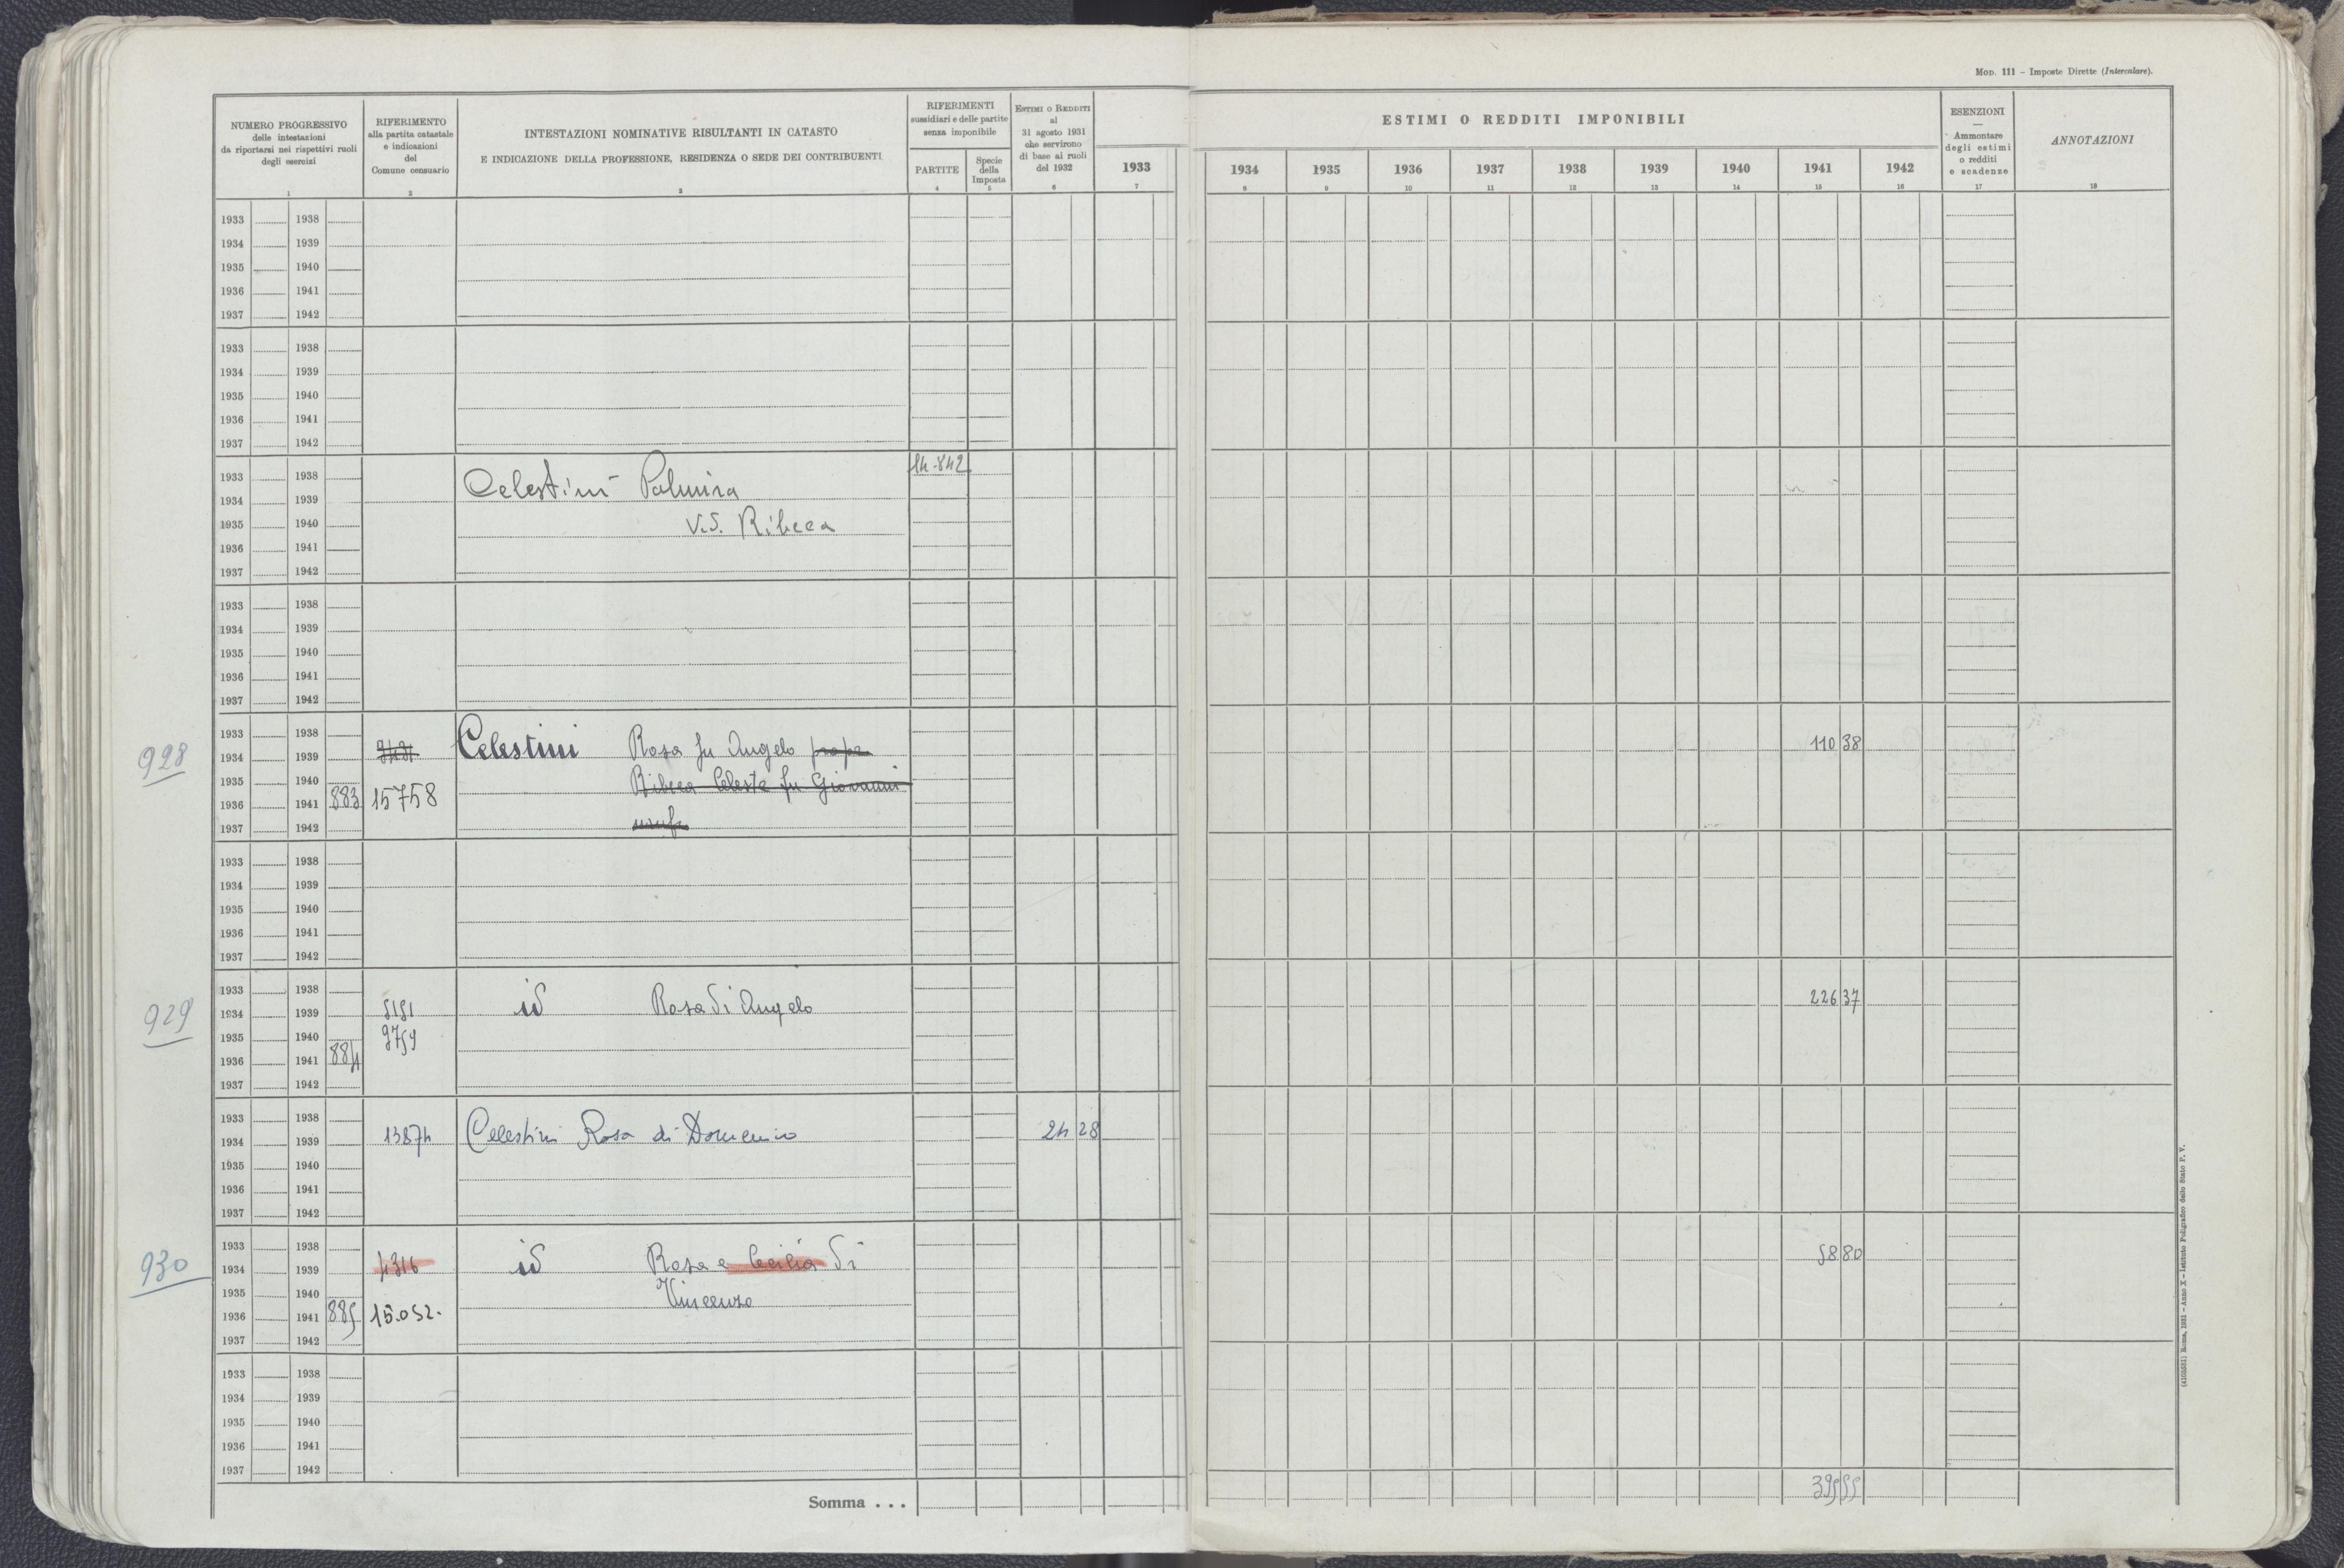 MOD. 111 – Imposte Dirette (Intercalare).
NUMERO PROGRESSIVO
delle intestazioni
da riportarsi nei rispettivi ruoli
degli esercizi
1
RIFERIMENTO
alla partita catastale
e indicazioni
del
Comune censuario
2
INTESTAZIONI NOMINATIVE RISULTANTI IN CATASTO
E INDICAZIONE DELLA PROFESSIONE, RESIDENZA O SEDE DEI CONTRIBUENTI
3
RIFERIMENTI
sussidiari e delle partite
senza imponibile
PARTITE
4
Specie
della
Imposta
5
ESTIMI O REDDITI
al
31 agosto 1931
che servirono
di base ai ruoli
del 1932
6
ESTIMI O REDDITI IMPONIBILI
1933
7
1934
8
1935
9
1936
10
1937
11
1938
12
1939
13
1940
14
1941
15
1942
16
ESENZIONI
—
Ammontare
degli estimi
o redditi
e scadenze
17
ANNOTAZIONI
18
1933 1938
1934 1939
1935 1940
1936 1941
1937 1942
1933 1938
1934 1939
1935 1940
1936 1941
1937 1942
1933 1938 14.842
1934 1939 Celestini Palmira
1935 1940 V.S. Ribeca
1936 1941
1937 1942
1933 1938
1934 1939
1935 1940
1936 1941
1937 1942
1933 1938
928 1934 1939 Celestini Rosa fu Angelo 110 38
1935 1940 Ribeca Celeste fu Giovanni
1936 1941 883 15758
1937 1942 usuf.
1933 1938
1934 1939
1935 1940
1936 1941
1937 1942
1933 1938
929 1934 1939 5151 id Rosa di Angelo 226 37
1935 1940 9759
1936 1941 884
1937 1942
1933 1938
1934 1939 13874 Celestini Rosa di Domenico 24 28
1935 1940
1936 1941
1937 1942
1933 1938
930 1934 1939 4316 id Rosa e Cecilia di 58 80
1935 1940 Vincenzo
1936 1941 885 15.052.
1937 1942
1933 1938
1934 1939
1935 1940
1936 1941
1937 1942
Somma . . . 395 55